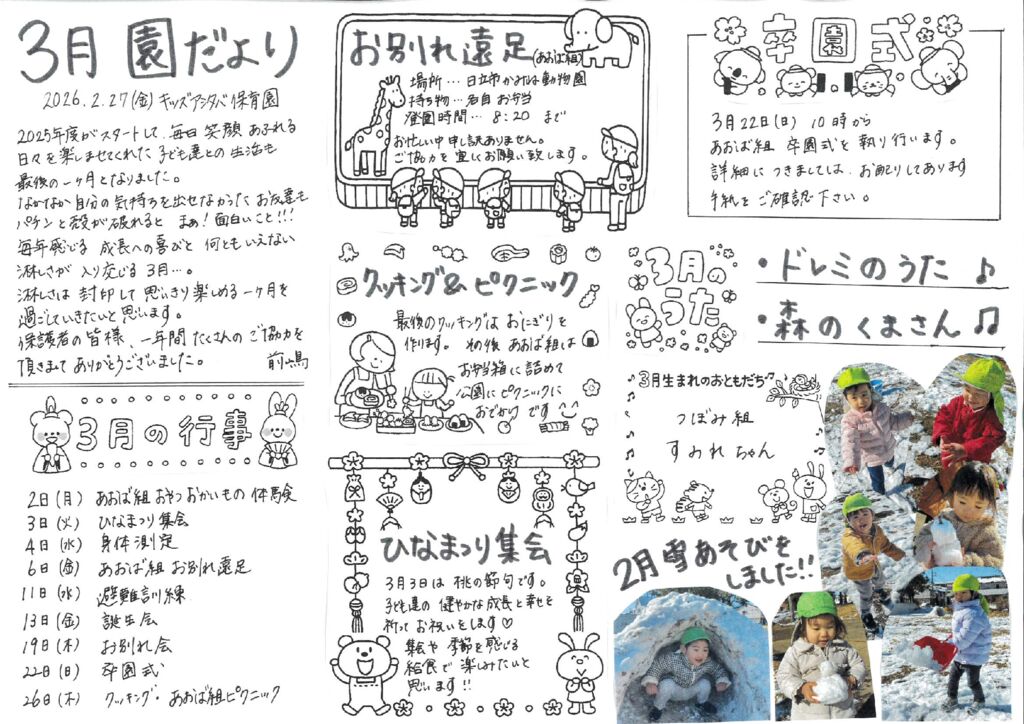 3月 園だより
2026.2.27(金) キッズアシタバ保育園
2025年度がスタートして、毎日 笑顔 あふれる
日々を楽しませてくれた 子ども達との 生活も
最後の一ヶ月となりました。
なかなか自分の気持ちを出せなかった お友達も
パチンと殻が破れると まぁ!面白いこと!!!
毎年感じる 成長への喜びと 何ともいえない
淋しさが 入り交じる 3月…。
淋しさは 封印して 思いきり楽しめる一ヶ月を
過ごしていきたいと思います。
保護者の皆様、一年間 たくさんの ご協力を
頂きまして ありがとうございました。 前嶋
3月の行事
2日(月) あおば組 おやつ おかいもの 体験
3日(火) ひなまつり 集会
4日(水) 身体測定
6日(金) あおば組 お別れ遠足
11日(水) 避難訓練
13日(金) 誕生会
19日(木) お別れ会
22日(日) 卒園式
26日(木) クッキング・あおば組ピクニック
お別れ遠足(あおば組)
場所…日立市かみね動物園
持ち物…各自 お弁当
登園時間…8:20 まで
お忙しい中 申し訳ありません。
ご協力を 宜しくお願い致します。
クッキング&ピクニック
最後のクッキングは おにぎりを
作ります。その後 あおば組は
お弁当箱に 詰めて
公園に ピクニックに
おでかけ です
ひなまつり集会
3月3日は 桃の節句です。
子ども達の 健やかな成長と 幸せを
祈って お祝いをします♡
集会や 季節を感じる
給食で 楽しみたいと
思います!!
卒園式
3月22日(日) 10時から
あおば組 卒園式を 執り行います。
詳細に つきましては、お配りしてあります
手紙を ご確認 下さい。
3月のうた
・ドレミのうた ♪
・森のくまさん ♫
3月生まれのおともだち
つぼみ組
すみれ ちゃん
2月 雪あそびを
しました!!